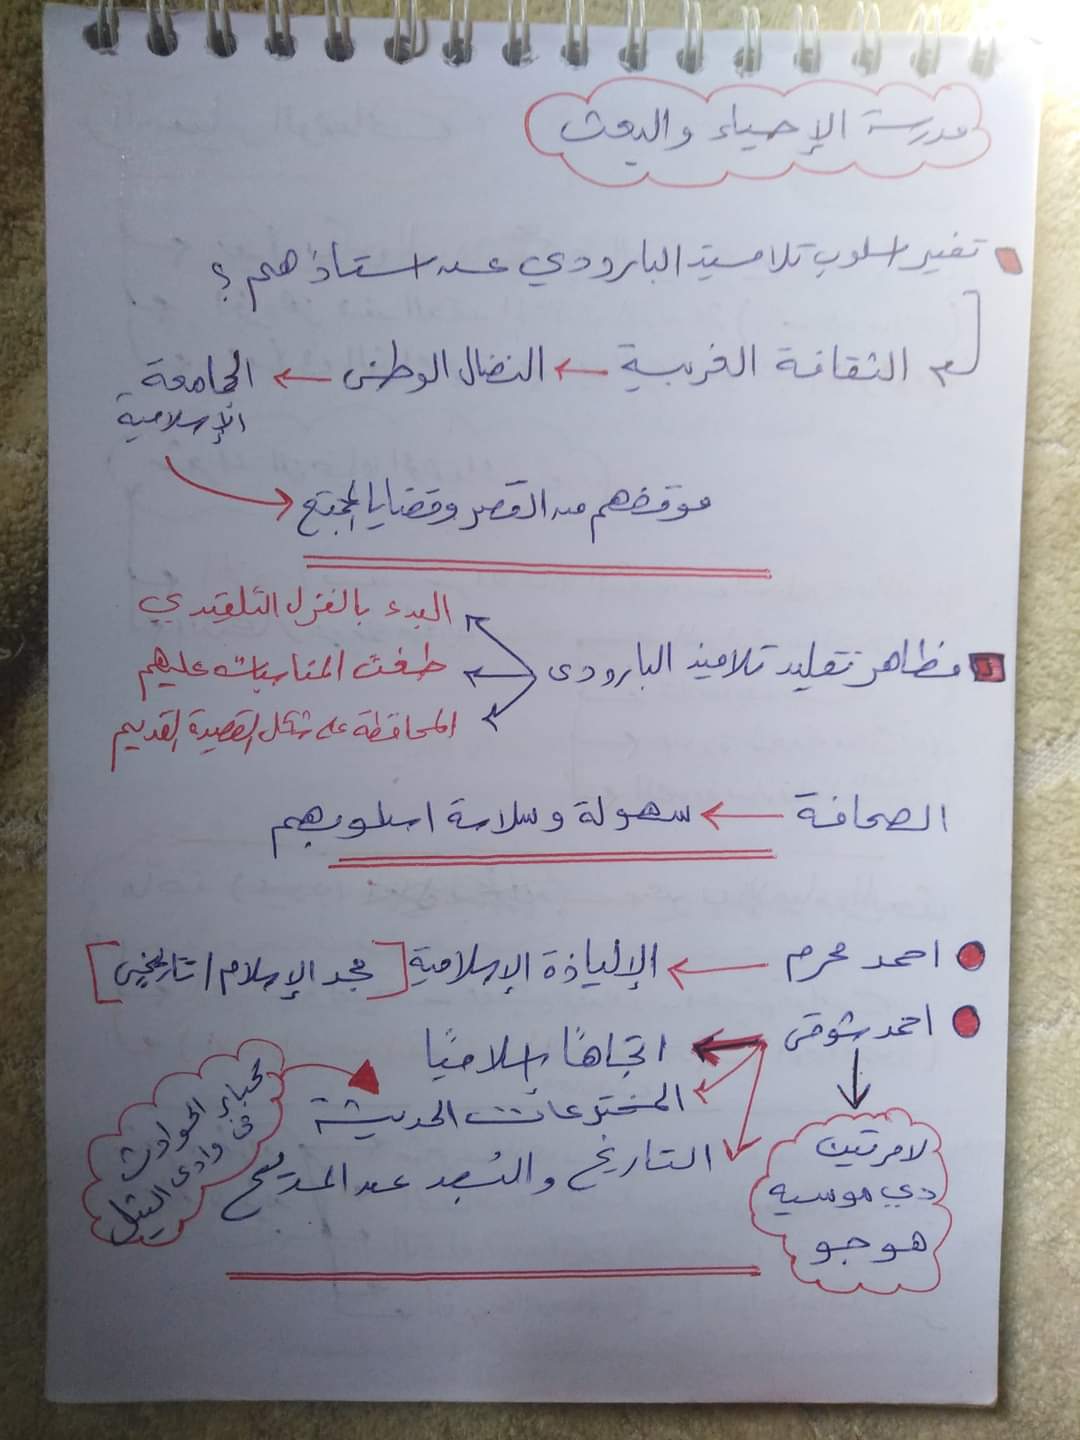 مدرسة الإحياء والبعث
تغير اسلوب تلاميذ البارودي عن استاذهم ؟
الثقافة الغربية ← النضال الوطنى ← الجامعة
الإسلامية
موقفهم من القصر وقضايا المجتمع
مظاهر تقليد تلاميذ البارودى
البدء بالغزل التقليدي
طغت المناسبات عليهم
المحافظة على شكل القصيدة القديم
الصحافة ← سهولة وسلاسة اسلوبهم
احمد محرم ← الإلياذة الإسلامية [مجد الإسلام / تاريخى]
احمد شوقى
اتجاهًا إسلاميًا
المخترعات الحديثة
التاريخ والبُعد عن المديح
الحوادث
فى وادى النيل
لامرتين
دي موسيه
هوجو